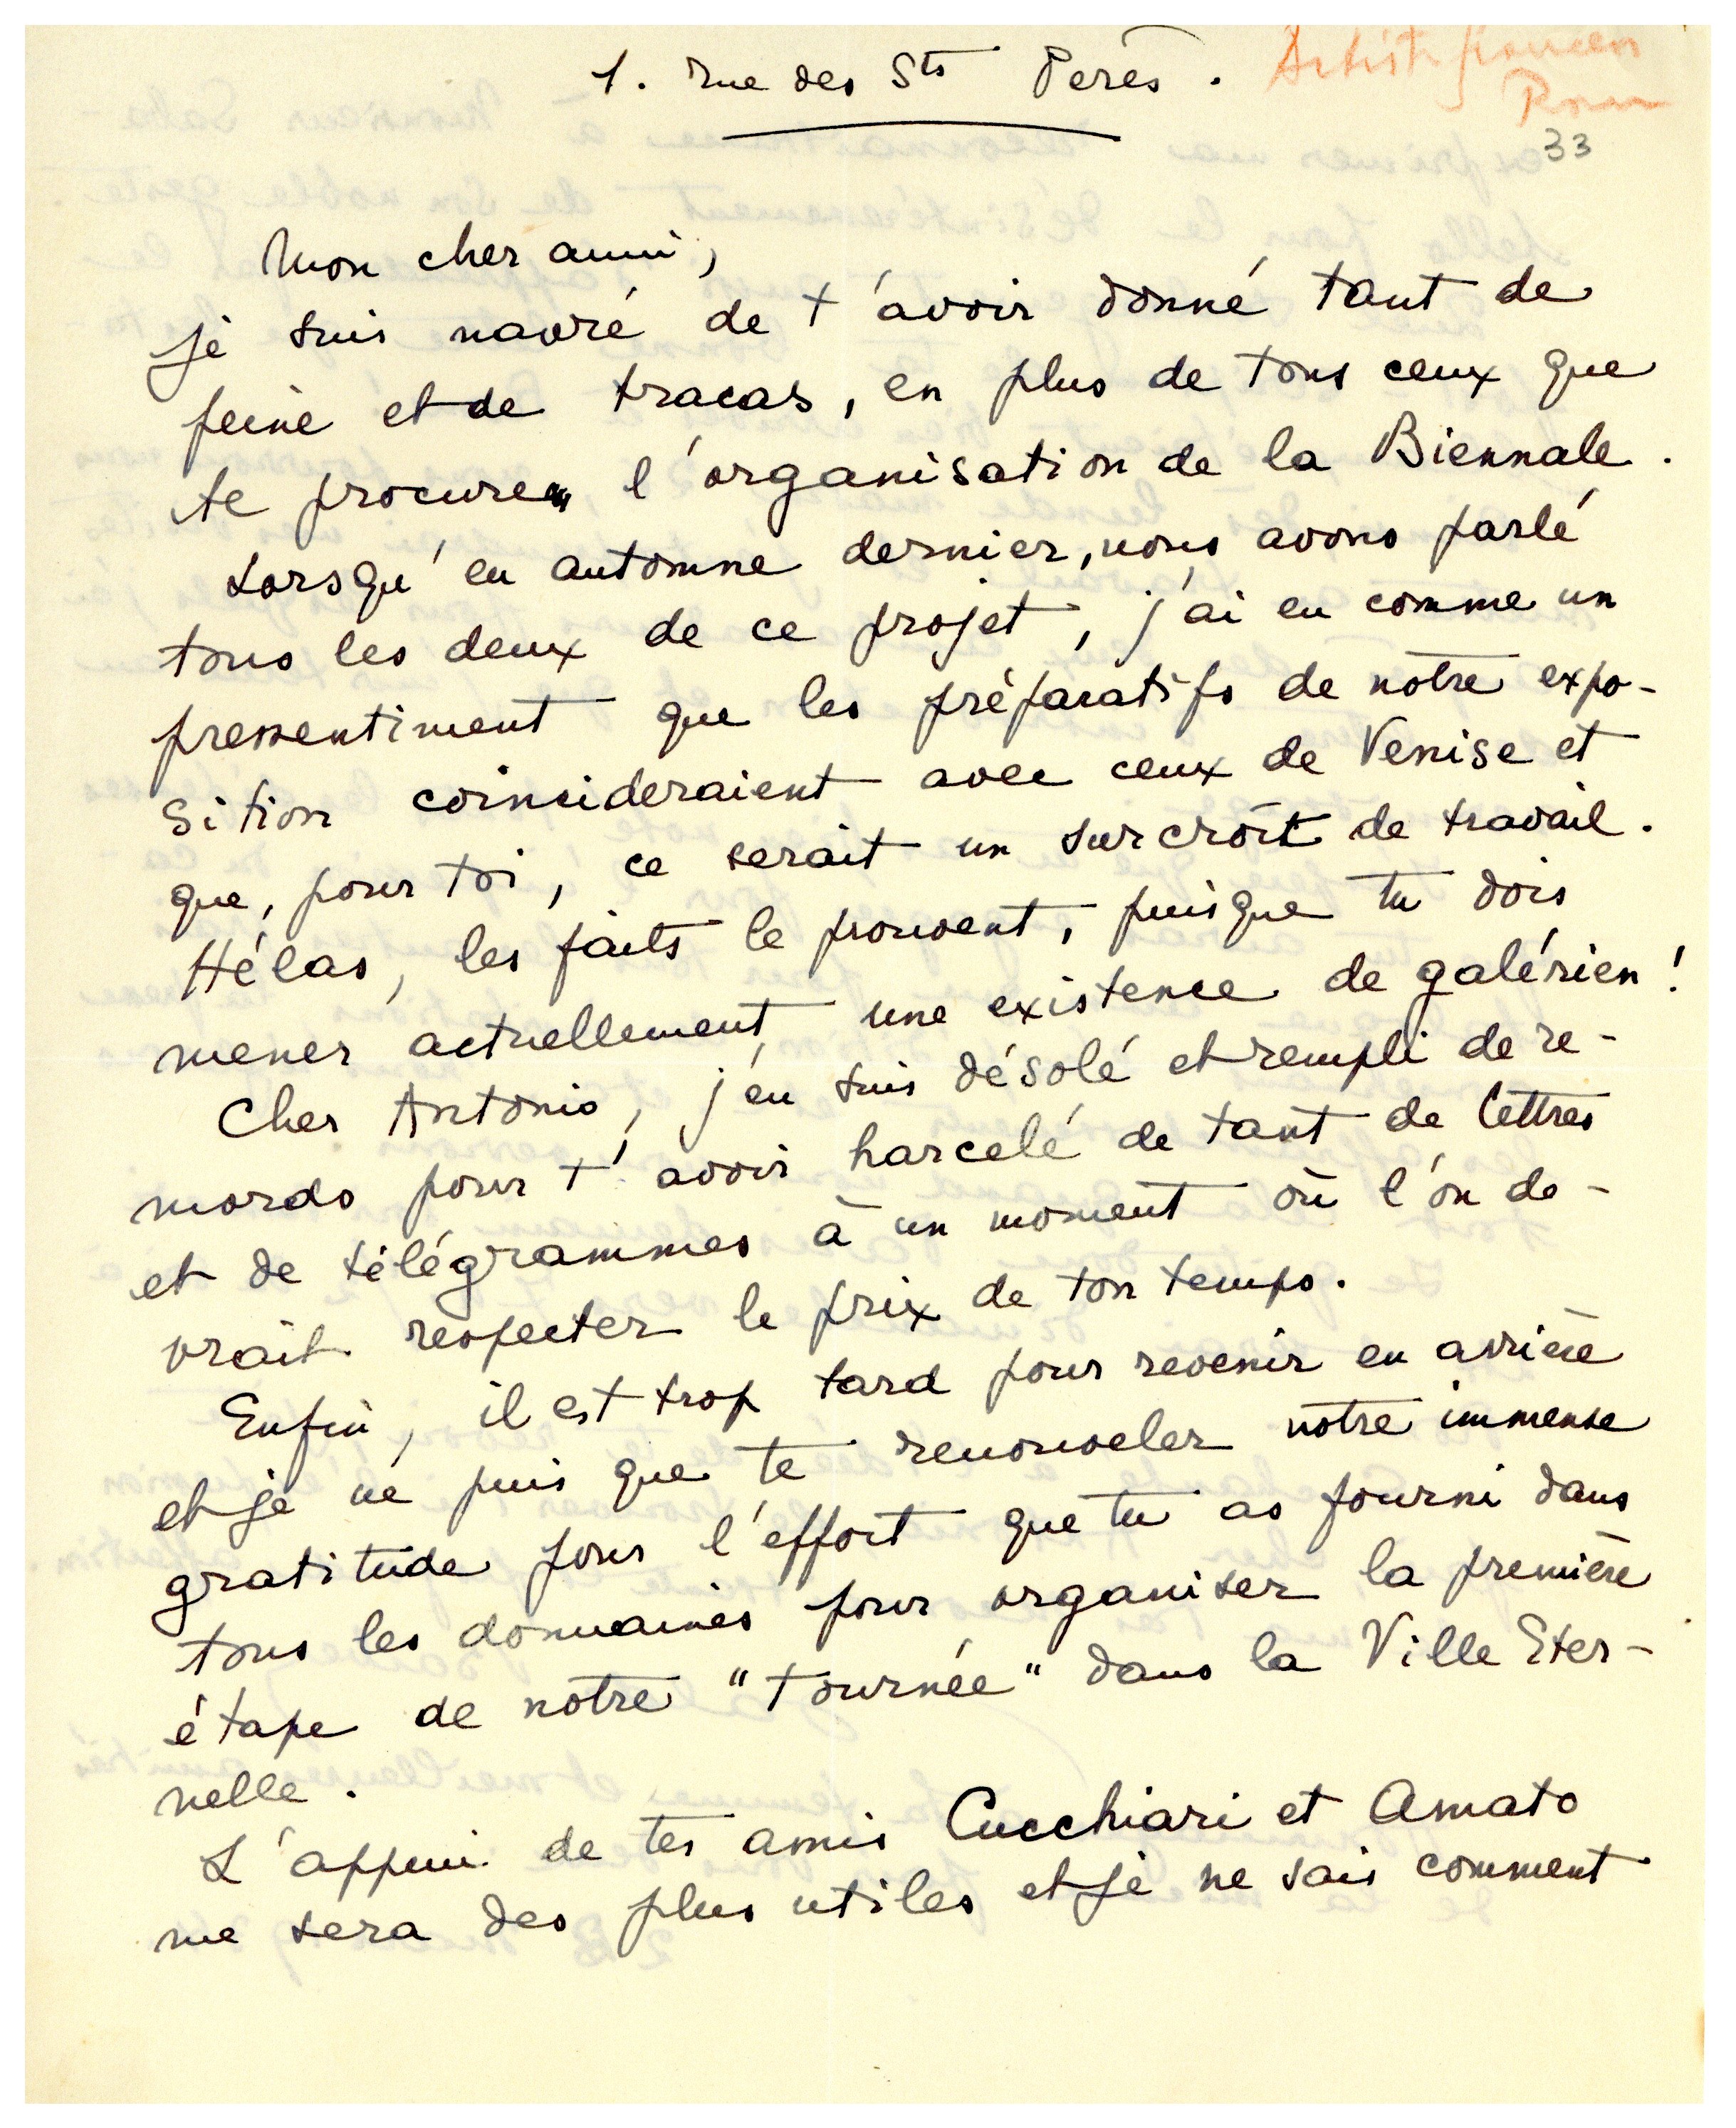 1. rue des Sts Pères.
Artisti francesi
Roma
33
Mon cher ami,
je suis navré de t'avoir donné tant de
peine et de tracas, en plus de tous ceux que
te procure l'organisation de la Biennale.
Lorsqu'en automne dernier, nous avons parlé
tous les deux de ce projet, j'ai eu comme un
pressentiment que les préparatifs de notre expo-
sition coincideraient avec ceux de Venise et
que, pour toi, ce serait un surcroît de travail.
Hélas, les faits le prouvent, puisque tu dois
mener actuellement, une existence de galérien!
Cher Antonio, j'en suis désolé et rempli de re-
mords pour t'avoir harcelé de tant de lettres
et de télégrammes à un moment où l'on de-
vrait respecter le prix de ton temps.
Enfin, il est trop tard pour revenir en arrière
et je ne puis que te renouveler notre immense
gratitude pour l'effort que tu as fourni dans
tous les domaines pour organiser la première
étape de notre "tournée" dans la Ville Eter-
nelle.
L'appui de tes amis Cucchiari et Amato
me sera des plus utiles et je ne sais comment